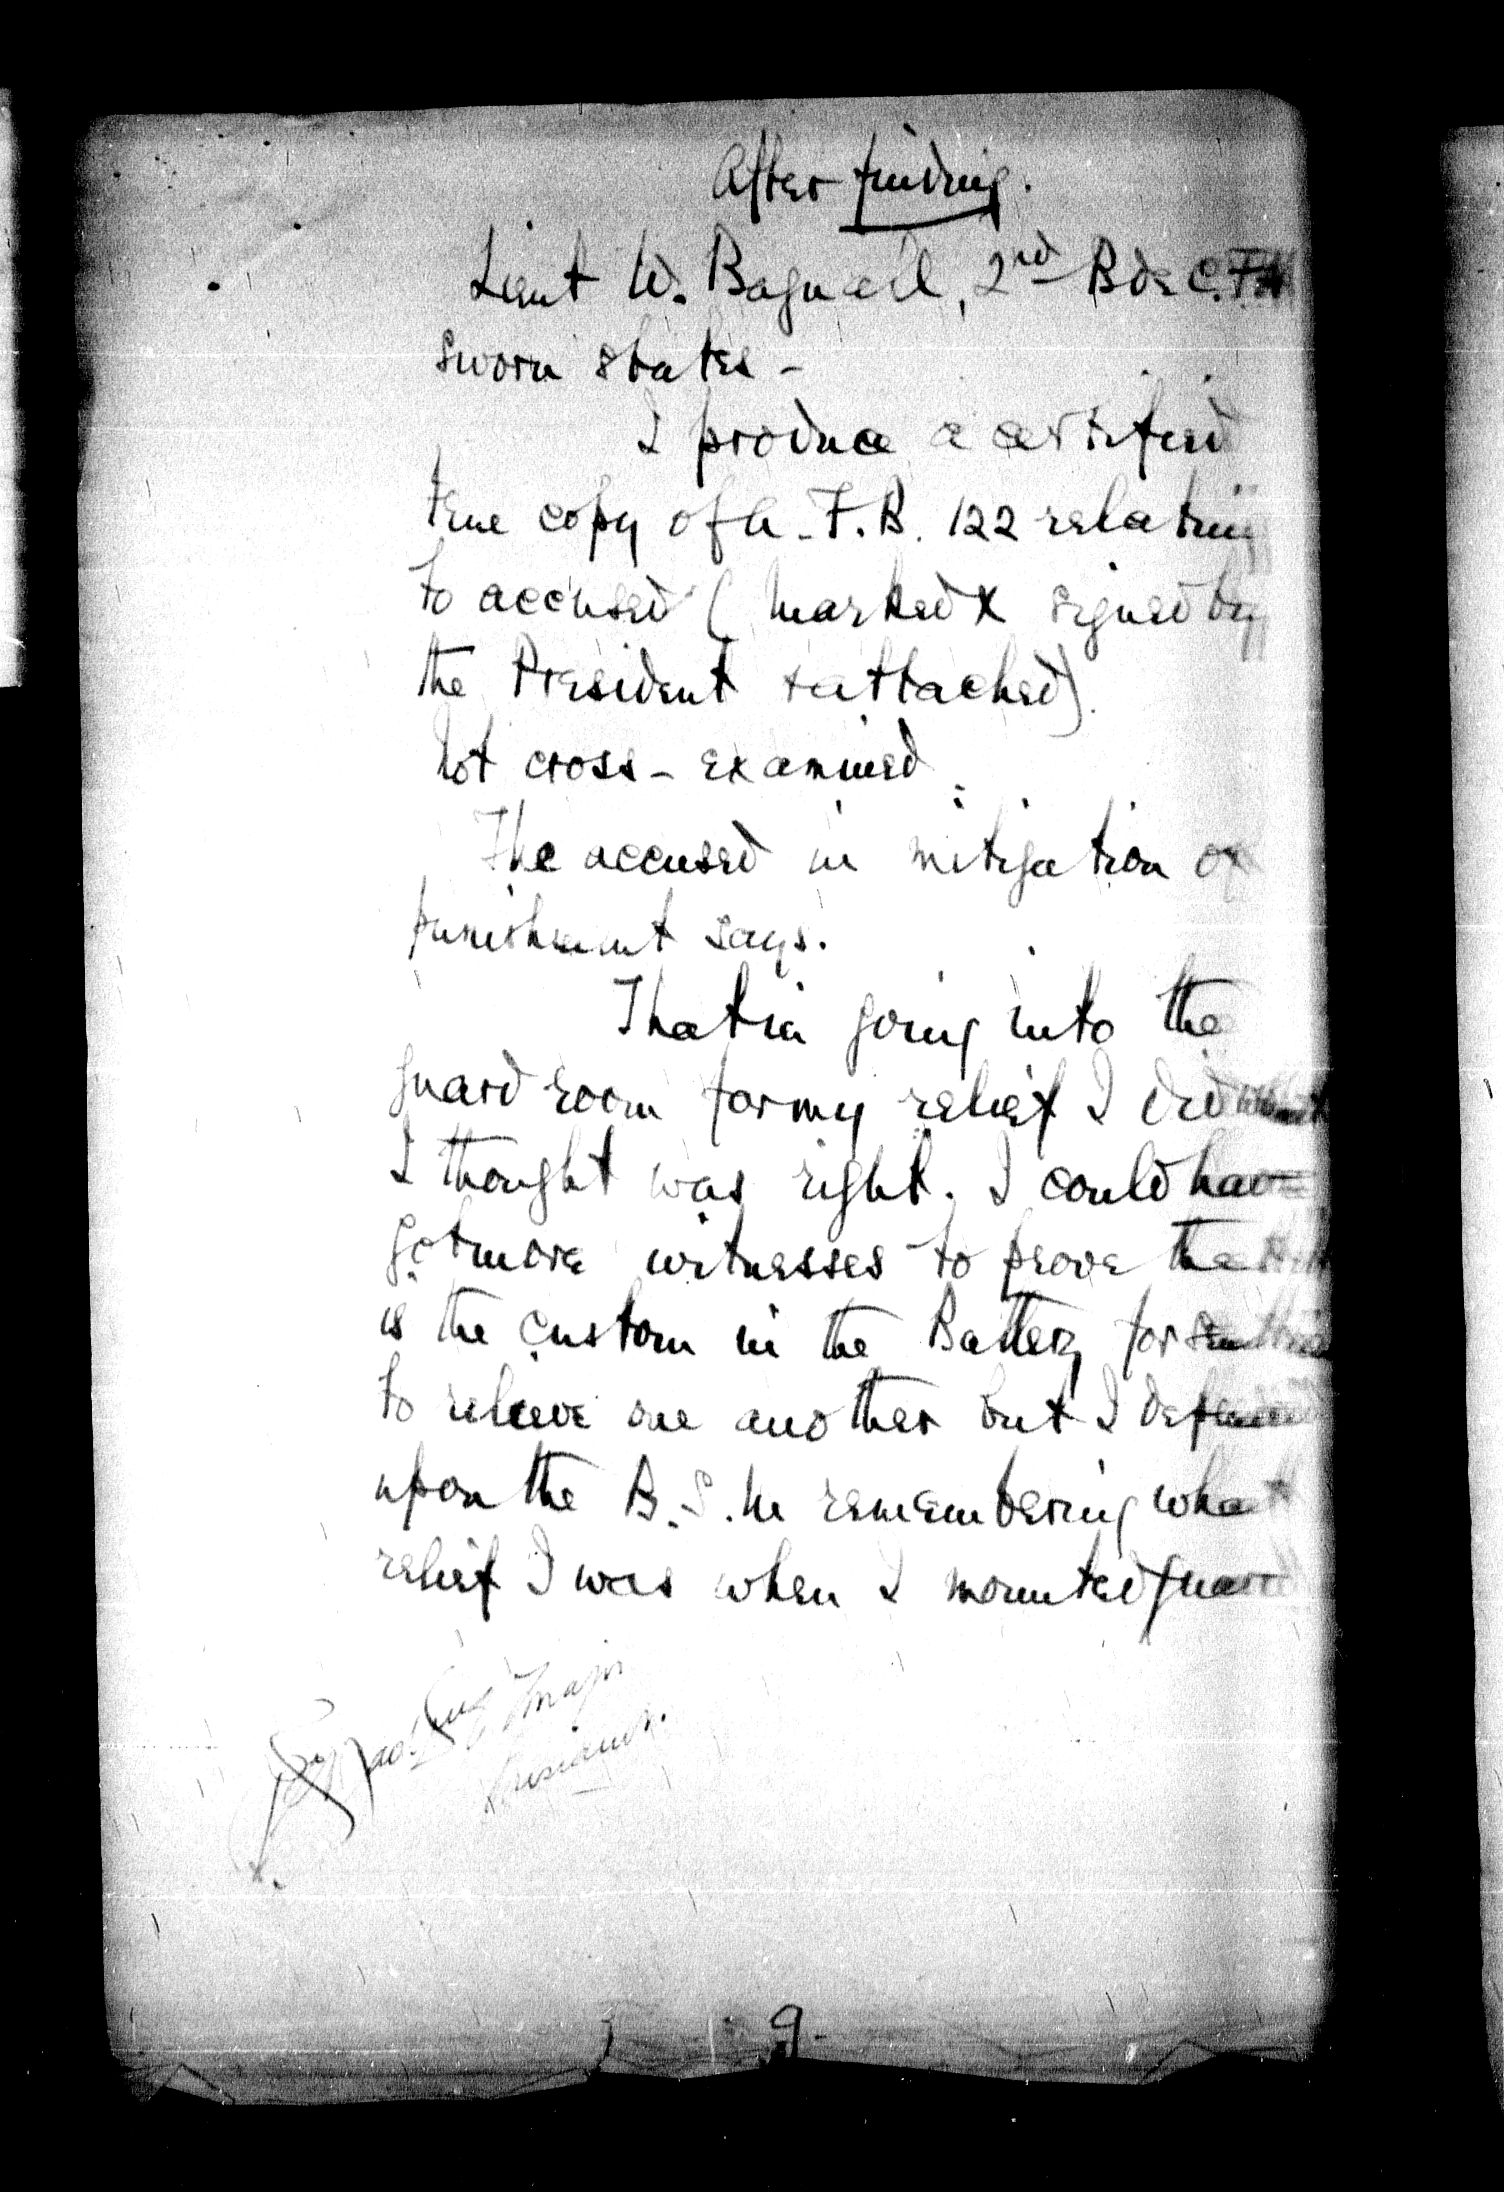 After finding.
Lieut W. Bagnall, 2nd Bde C.F.A
sworn states -
I produce a certified
true copy of A.F.B. 122 relating
to accused (marked X signed by
the President & attached).
Not cross-examined.
The accused in mitigation of
punishment says.
That in going into the
guard room for my relief I did what
I thought was right. I could have
got more witnesses to prove that it
is the custom in the Battery for sentries
to relieve one another but I depended
upon the B.S.M remembering what
relief I was when I mounted guard
Major
President.
9.